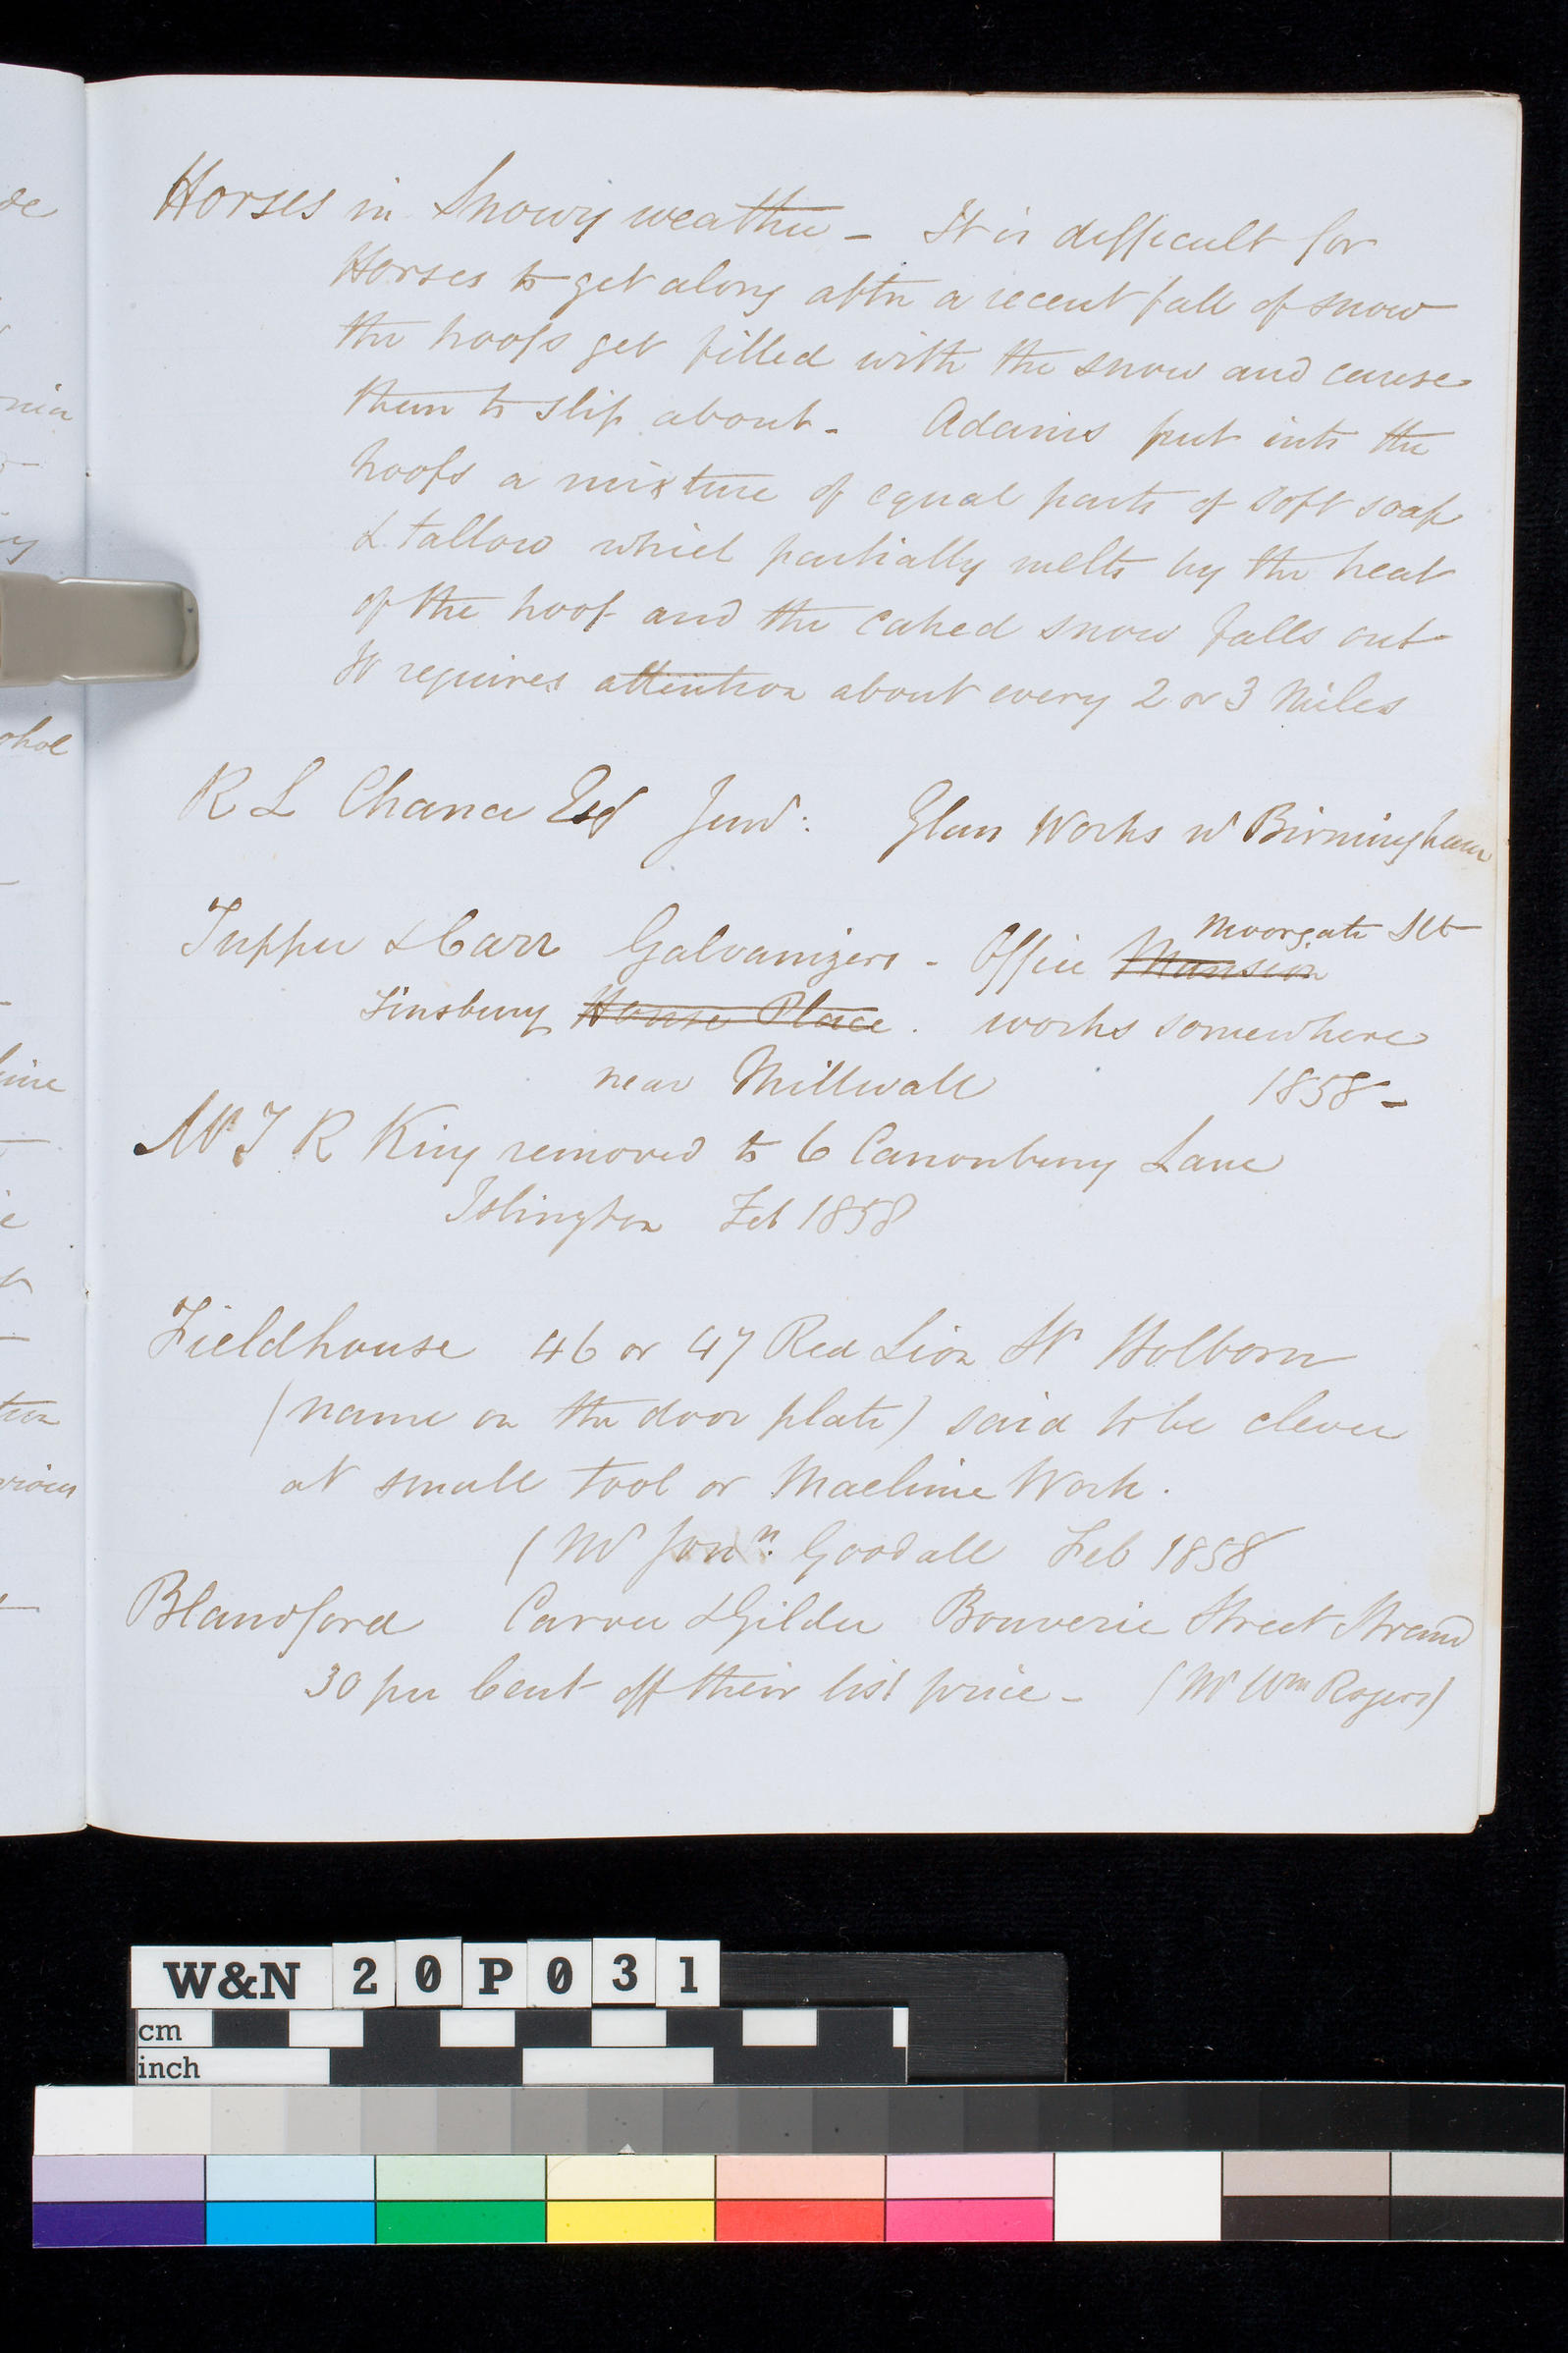 Horses in Snowy weather – It is difficult for
Horses to get along after a recent fall of snow
the hoofs get filled with the snow and cause
them to slip about – Adams put into the
hoofs a mixture of equal parts of soft soap
& tallow which partially melts by the heat
of the hoof and the caked snow falls out
It requires attention about every 2 or 3 Miles
R L Chance Esq Junr: Glass Works nr Birmingham
Moorgate Stt
Tupper & Carr Galvanizers – Office Mansion
Finsbury House Place. works somewhere
near Millwall 1858 –
Mr T R King removed to 6 Canonbury Lane
Islington Feb 1858
Fieldhouse 46 or 47 Red Lion St Holborn
(name on the door plate) said to be clever
at small tool or Machine Work.
(Mr Jonn. Goodall Feb 1858
Blandford Carver & Gilder Bouverie Street Strand
30 per Cent off their list price – (Mr Wm Rogers)
W&N 20P031
cm
inch